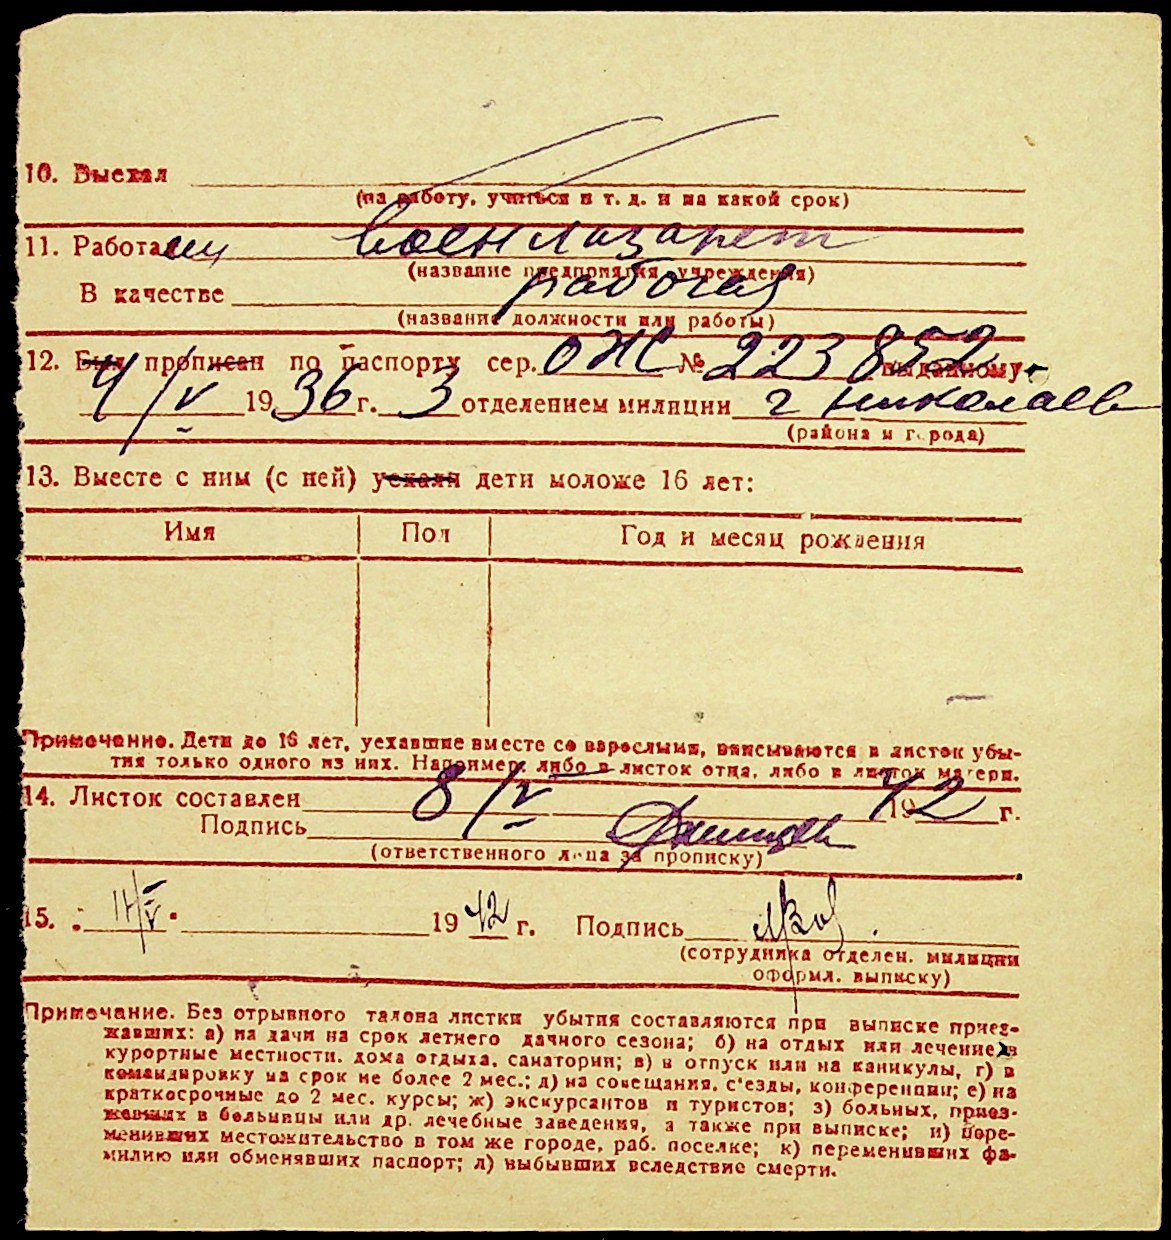 10. Выехал
(на работу, учиться и т. д. и на какой срок)
11. Работа Военлазарет
(название предприятия, учреждения)
В качестве рабочая
(название должности или работы)
12. Был прописан по паспорту сер. ОЖ № 223852 выданному
4/V 1936 г. 3 отделением милиции г Николаев
(района и города)
13. Вместе с ним (с ней) уехали дети моложе 16 лет:
Имя Пол Год и месяц рождения
Примечание. Дети до 16 лет, уехавшие вместе со взрослыми, вписываются в листок убы-
тия только одного из них. Например: либо в листок отца, либо в листок матери.
14. Листок составлен 8/V 1942 г.
Подпись
(ответственного лица за прописку)
15. 11/V 1942 г. Подпись
(сотрудника отделен. милиции
оформл. выписку)
Примечание. Без отрывного талона листки убытия составляются при выписке приез-
жавших: а) на дачи на срок летнего дачного сезона; б) на отдых или лечение в
курортные местности, дома отдыха, санатории; в) в отпуск или на каникулы, г) в
командировку на срок не более 2 мес.; д) на совещания, с'езды, конференции; е) на
краткосрочные до 2 мес. курсы; ж) экскурсантов и туристов; з) больных, приез-
жавших в больницы или др. лечебные заведения, а также при выписке; и) пере-
менивших местожительство в том же городе, раб. поселке; к) переменивших фа-
милию или обменявших паспорт; л) выбывших вследствие смерти.